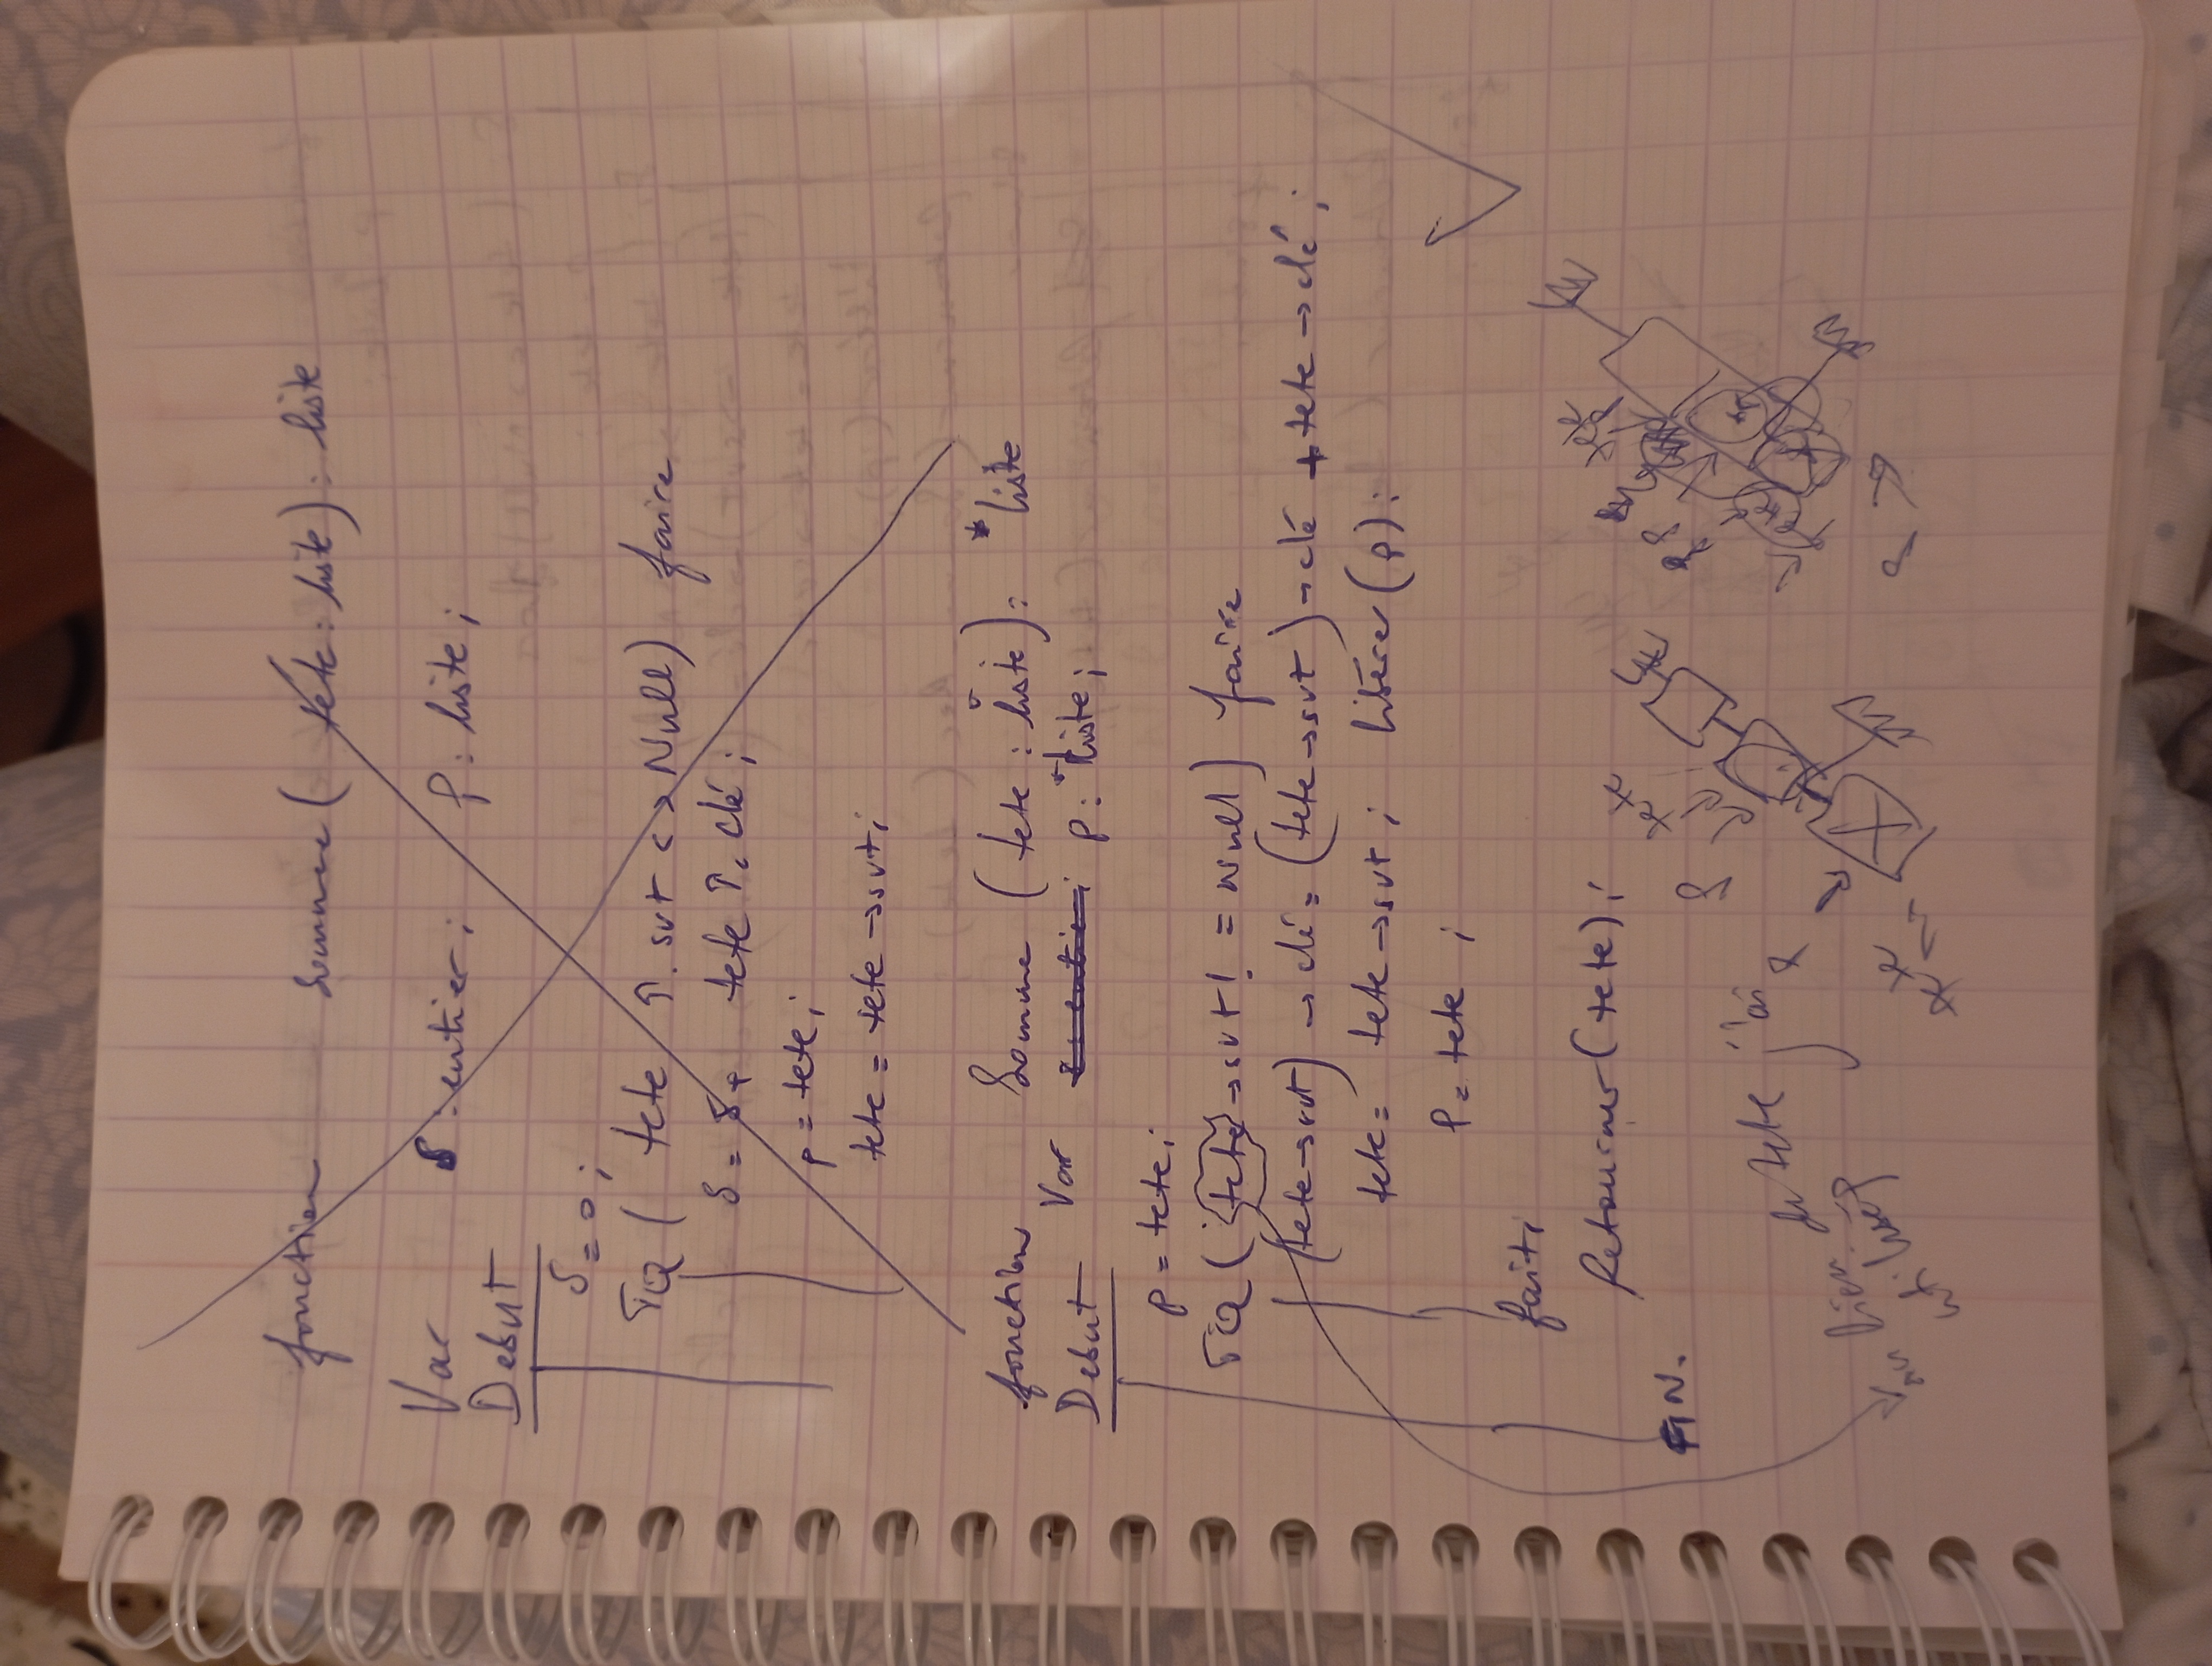 fonction Somme ( tete : liste ) : liste
Var S : entier ; P : liste ;
Debut
S = 0 ;
TQ ( tete ↑. svt <> Null ) faire
S = S + tete ↑. clé ;
p = tete ;
tete = tete → svt ;
fonction Somme ( tete : *liste ) : *liste
Debut Var s : entier ; p : *liste ;
p = tete ;
TQ ( tete → svt ! = Null ) faire
(tete → svt) → clé = (tete → svt) → clé + tete → clé ;
tete = tete → svt ; libérer (p) ;
P = tete ;
fait ;
Retourner ( tete ) ;
FIN.
au lieu de tete j'ai
utilisé p
P tete
P
tete
tete
P
P
tete
P